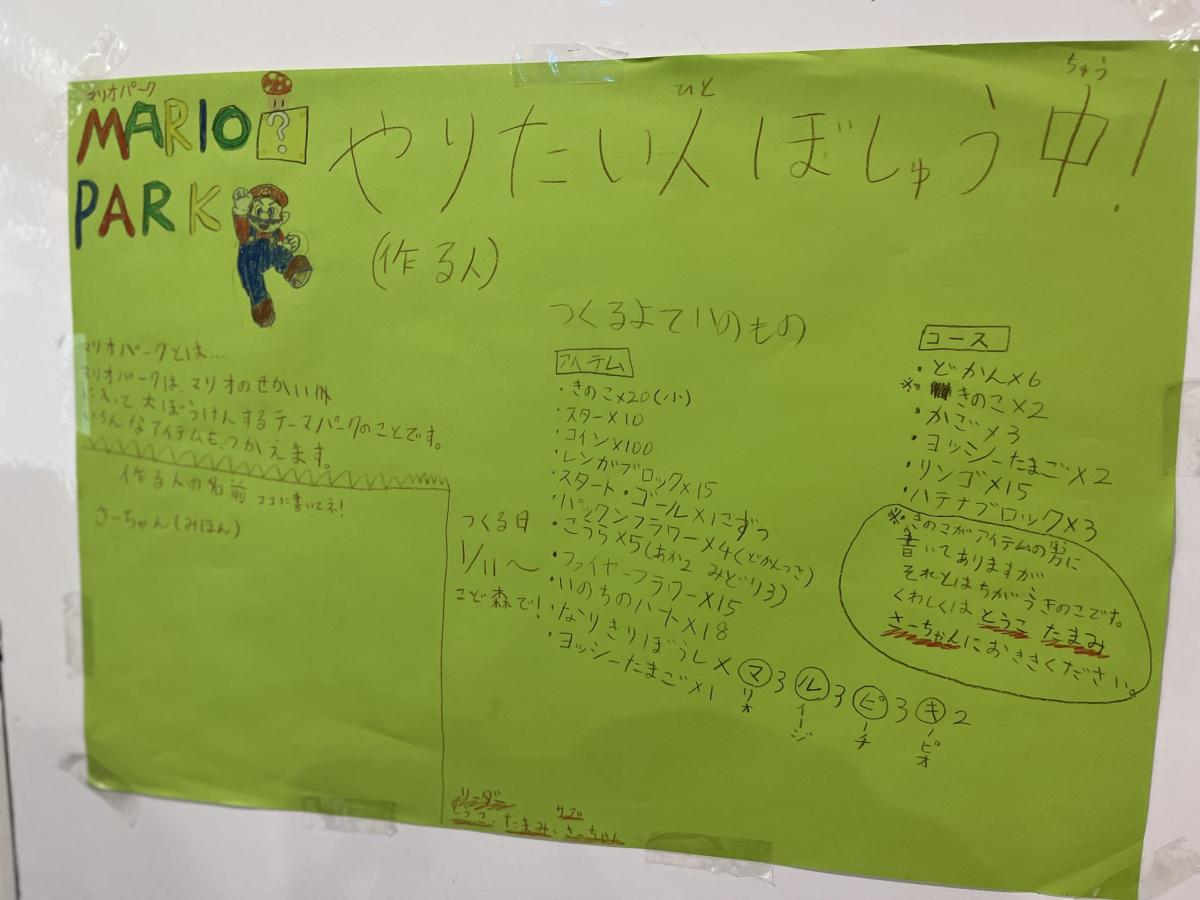 マリオパーク
MARIO ?
PARK
やりたい人ぼしゅう中!
ひと
ちゅう
(作る人)
マリオパークとは…
マリオパークは、マリオのせかい
に入って大ぼうけんするテーマパークのことです。
いろんなアイテムもつかえます。
作る人の名前 ココに書いてネ!
さーちゃん(みほん)
つくる日
1/11〜
こど森で!
つくるよていのもの
アイテム
・きのこ×20(小)
・スター×10
・コイン×100
・レンガブロック×15
・スタート・ゴール×1こずつ
・パックンフラワー×4(どかんつき)
・こうら×5(あか2 みどり3)
・ファイヤーフラワー×15
・いのちのハート×18
・なりきりぼうし×マ3ル3ピ3キ2
リオ
イージ
ーチ
ーピオ
・ヨッシーたまご×1
コース
・どかん×6
※・きのこ×2
・かご×3
・ヨッシーたまご×2
・リンゴ×15
・ハテナブロック×3
※きのこがアイテムの男に
書いてありますが
それとはちがうきのこです。
くわしくはとうこ たまみ
さーちゃんにおききください。
リーダー
サブ
とうこ、たまみ、さーちゃん